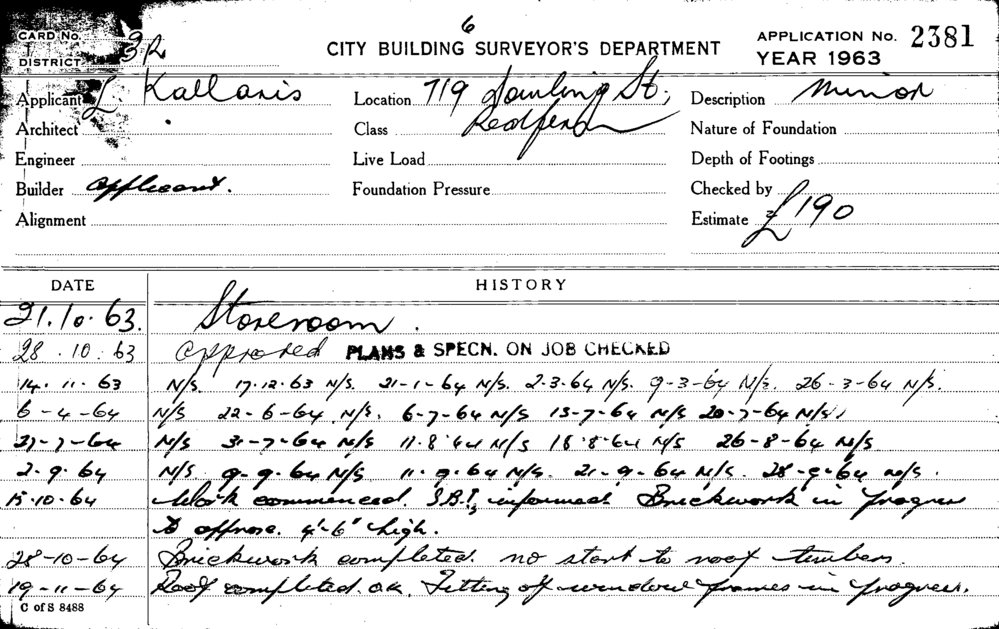 6
CARD No.
DISTRICT 3R
CITY BUILDING SURVEYOR'S DEPARTMENT
APPLICATION No. 2381
YEAR 1963
Applicant L Kallanis
Location 719 Dowling St,
Redfern
Description Minor
Architect
Class
Nature of Foundation
Engineer
Live Load
Depth of Footings
Builder applicant.
Foundation Pressure
Checked by
Alignment
Estimate £190
DATE HISTORY
21.10.63. Storeroom.
28.10.63 Approved PLANS & SPECN. ON JOB CHECKED
14.11.63 N/S. 17.12.63 N/S. 21-1-64 N/S. 2-3-64 N/S. 9-3-64 N/S. 26-3-64 N/S.
6-4-64 N/S 22-6-64 N/S. 6-7-64 N/S 13-7-64 N/S 20-7-64 N/S.
27-7-64 N/S 31-7-64 N/S 11.8.64 N/S 18.8.64 N/S 26-8-64 N/S
2.9.64 N/S. 9-9-64 N/S. 11.9.64 N/S. 21-9-64 N/S. 28-9-64 N/S.
15.10.64 Work commenced. informed Brickwork in progress
to approx. 4'-6" high.
28-10-64 Brickwork completed. no start to roof timbers.
19-11-64 Roof completed. O.K. Fitting of window frames in progress.
C of S 8488